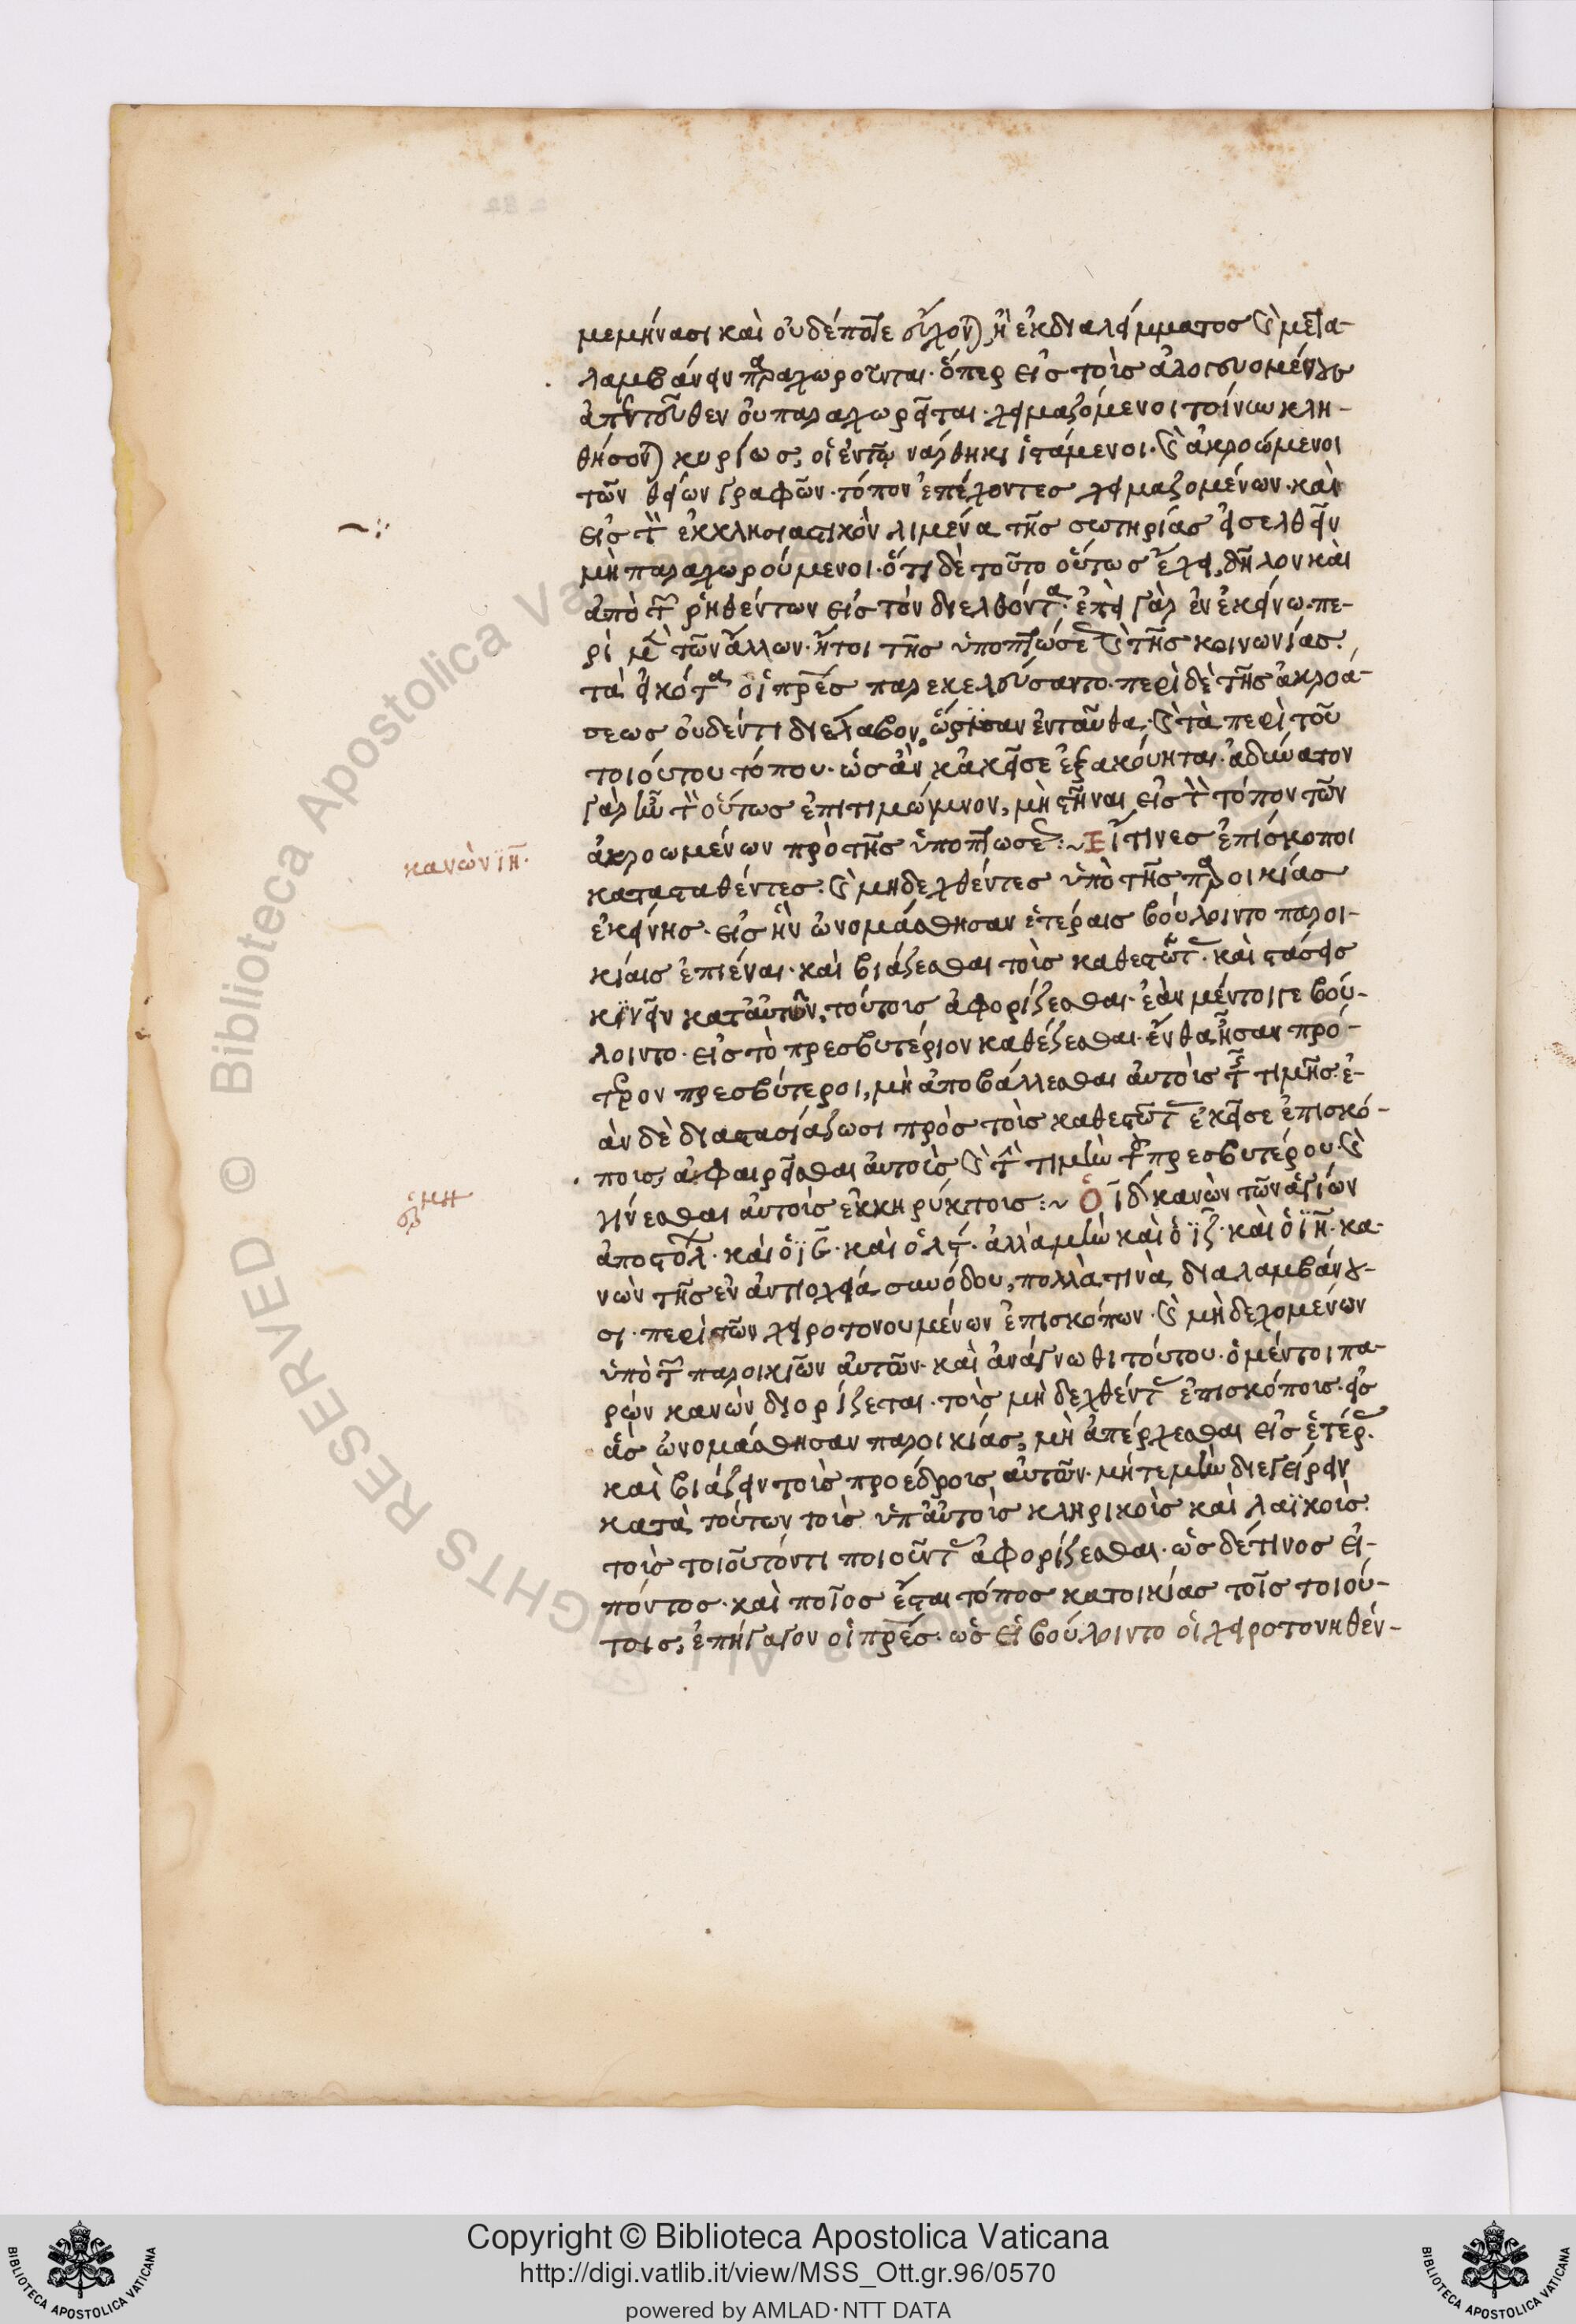 μεμήνασι καὶ οὐδέποτε σχολὴν, ἢ ἐκ διαλείμματος καὶ μετα-
λαμβάνειν παραχωροῦνται. ὅπερ εἰς τοὺς
ἀπεντεῦθεν οὐ παραχωρεῖται. χειμαζόμενοι τοίνυν κλη-
θήσονται κυρίως, οἱ ἐν τῷ νάρθηκι ἱστάμενοι. καὶ ἀκροώμενοι
τῶν θείων γραφῶν. τόπον ἐπέχοντες χειμαζομένων. καὶ
εἰς τὸν ἐκκλησιαστικὸν λιμένα τῆς σωτηρίας εἰσελθεῖν
μὴ παραχωρούμενοι. ὅτι δὲ τοῦτο οὕτως ἔχει, δῆλον καὶ
ἀπὸ τῶν ῥηθέντων εἰς τὸν διελθόντα. ἐπεὶ γὰρ ἐν ἐκείνω. πε-
ρὶ μὲν τῶν ἄλλων. ἤτοι τῆς ὑποπτώσεως καὶ τῆς κοινωνίας.
τὰ εἰκότα οἱ πρες παρεκελεύσαντο. περὶ δὲ τῆς ἀκροά-
σεως οὐδέν τι διέλαβον, ὥρισαν ἐνταῦθα. καὶ τὰ περὶ τοῦ
τοιούτου τόπου. ὡς ἂν κἀκεῖσε ἐξακούηται. ἀδύνατον
γὰρ ἦν τὸν οὕτως ἐπιτιμώμενον, μὴ στῆναι εἰς τὸν τόπον τῶν
ἀκροωμένων πρὸ τῆς ὑποπτώσεως :~ Εἴ τινες ἐπίσκοποι
κανὼν ιη.
κατασταθέντες. καὶ μὴ δεχθέντες ὑπὸ τῆς παροικίας
ἐκείνης. εἰς ἣν ὠνομάσθησαν ἑτέραις βούλοιντο παροι-
κίαις ἐπιέναι. καὶ βιάζεσθαι τοὺς καθεστῶτας. καὶ στάσεις
κινεῖν κατ' αὐτῶν, τούτοις ἀφορίζεσθαι. ἐὰν μέντοιγε βού-
λοιντο. εἰς τὸ πρεσβυτέριον καθέζεσθαι. ἔνθα ἦσαν πρό-
τερον πρεσβύτεροι, μὴ ἀποβάλλεσθαι αὐτοὺς τῆς τιμῆς. ἐ-
ὰν δὲ διαστασιάζωσι πρὸς τοὺς καθεστῶτας ἐκεῖσε ἐπισκό-
ποις, ἀφαιρεῖσθαι αὐτοὺς καὶ τὴν τιμὴν τοῦ πρεσβυτέρου. καὶ
γίνεσθαι αὐτοὺς ἐκκηρύκτοις :~ Ὁ ιδ κανὼν τῶν ἁγίων
ἀποστόλων. καὶ ὁ ις. καὶ ὁ λς. ἀλλὰ μὴν καὶ ὁ ιζ. καὶ ὁ ιη. κα-
νὼν τῆς ἐν ἀντιοχεία συνόδου, πολλά τινα διαλαμβάνου-
σι. περὶ τῶν χειροτονουμένων ἐπισκόπων. καὶ μὴ δεχομένων
ὑπὸ τῶν παροικιῶν αὐτῶν. καὶ ἀνάγνωθι τούτου. ὁ μέντοι πα-
ρὼν κανὼν διορίζεται. τοὺς μὴ δεχθέντας ἐπισκόποις. εἰς
ἃς ὠνομάσθησαν παροικίας, μὴ ἀπέρχεσθαι εἰς ἑτέρας.
καὶ βιάζειν τοὺς προέδροις αὐτῶν. μήτε μὴν διεγείρειν
κατὰ τούτων τοὺς ὑπ' αὐτοὺς κληρικοὺς καὶ λαϊκοὺς.
τοὺς τοιοῦτόν τι ποιοῦντας ἀφορίζεσθαι. ὡς δέ τινος εἰ-
πόντος. καὶ ποῖος ἔσται τόπος κατοικίας τοῖς τοιού-
τοις, ἐπήγαγον οἱ πρες. ὡς εἰ βούλοιντο οἱ χειροτονηθέν-